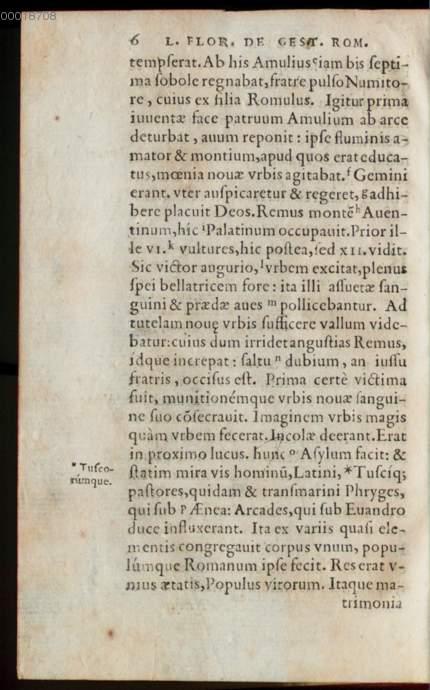 00018708
6 L. FLOR. DE GEST. ROM.
tempserat. Ab his Amulius eiam bis septi-
ma sobole regnabat, fratre pulso Numito-
re, cuius ex filia Romulus. Igitur prima
iuuentæ face patruum Amulium ab arce
deturbat, auum reponit: ipse fluminis a-
mator & montium, apud quos erat educa-
tus, mœnia nouæ vrbis agitabat. f Gemini
erant. vter auspicaretur & regeret, g adhi-
bere placuit Deos. Remus montē h Auen-
tinum, hic i Palatinum occupauit. Prior il-
le VI. k vultures, hic postea, sed XII. vidit.
Sic victor augurio, l vrbem excitat, plenus
spei bellatricem fore: ita illi assuetæ san-
guini & prædæ aues m pollicebantur. Ad
tutelam nouę vrbis sufficere vallum vide-
batur: cuius dum irridet angustias Remus,
idque increpat: saltu n dubium, an iussu
fratris, occisus est. Prima certè victima
fuit, munitionémque vrbis nouæ sangui-
ne suo cōsecrauit. Imaginem vrbis magis
quàm vrbem fecerat. Incolæ deerant. Erat
in proximo lucus. hunc o Asylum facit: &
statim mira vis hominū, Latini, *Tusciq;
pastores, quidam & transmarini Phryges,
qui sub p Ænea: Arcades, qui sub Euandro
duce influxerant. Ita ex variis quasi ele-
mentis congregauit corpus vnum, popu-
lúmque Romanum ipse fecit. Res erat v-
nius ætatis, Populus virorum. Itaque ma-
trimonia
* Tusco-
rúmque.